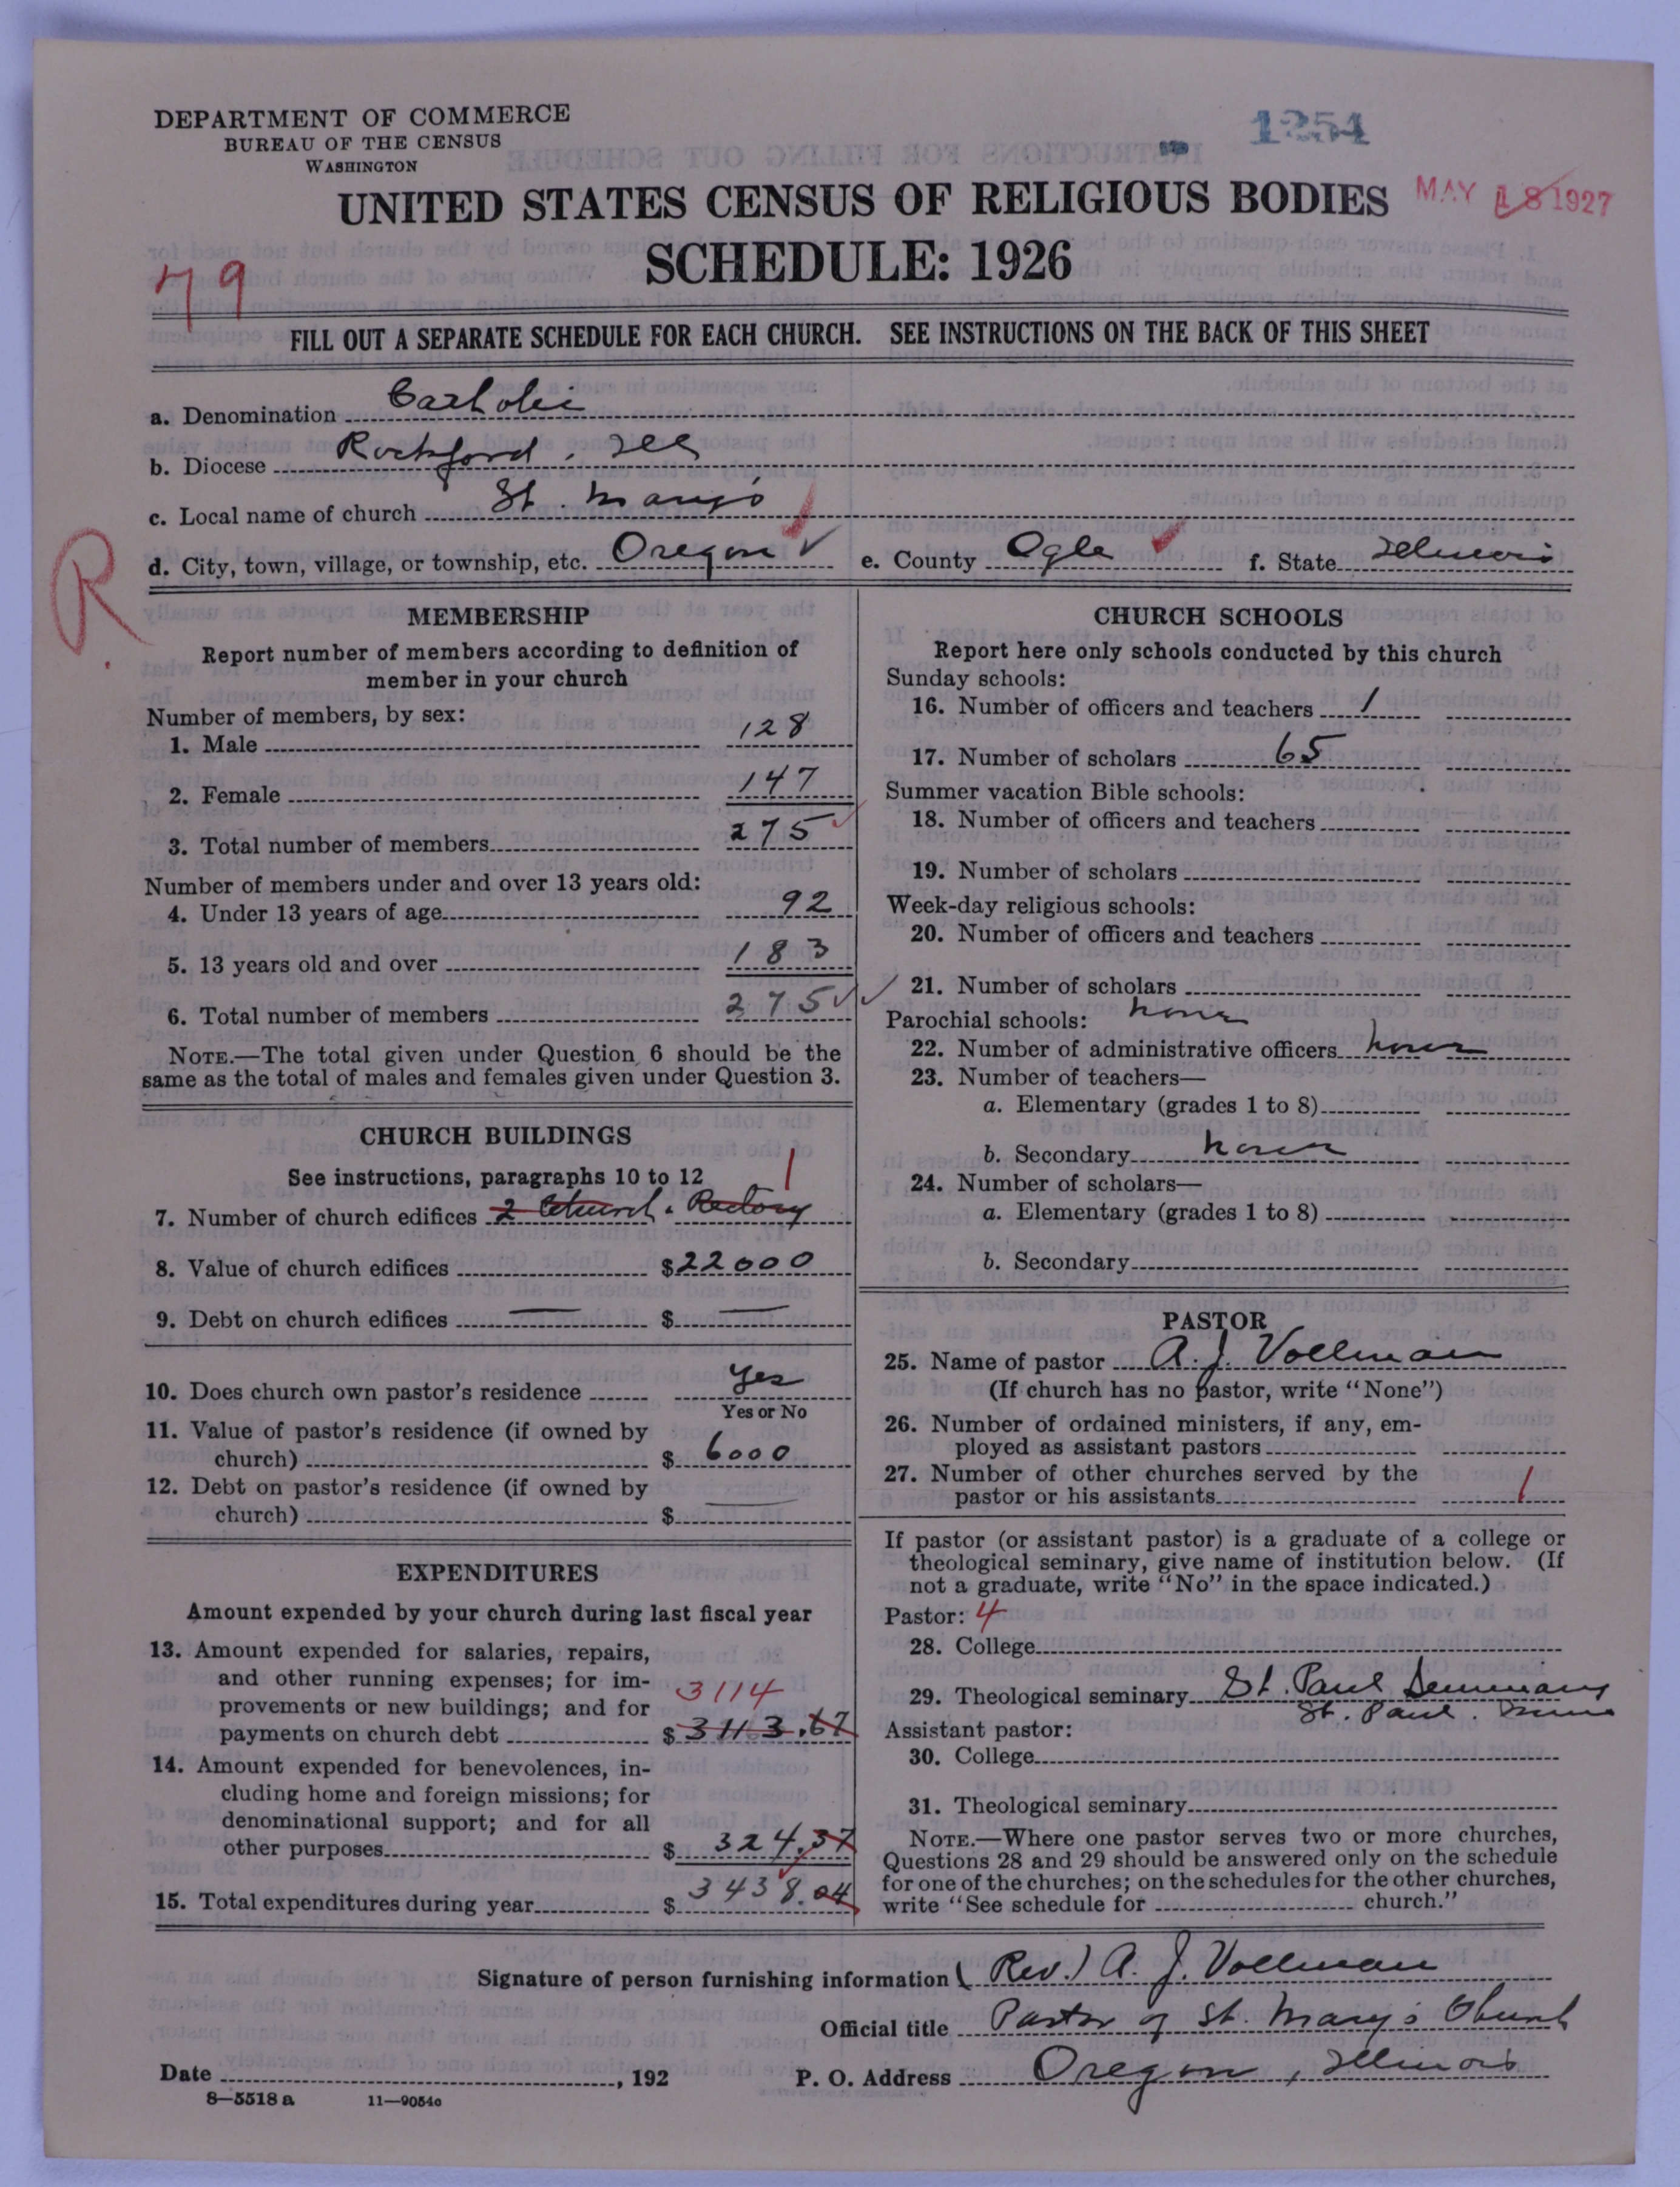 DEPARTMENT OF COMMERCE
BUREAU OF THE CENSUS
WASHINGTON
1254
UNITED STATES CENSUS OF RELIGIOUS BODIES
MAY 18 1927
SCHEDULE: 1926
79
FILL OUT A SEPARATE SCHEDULE FOR EACH CHURCH. SEE INSTRUCTIONS ON THE BACK OF THIS SHEET
a. Denomination Catholic
b. Diocese Rockford, Ill
c. Local name of church St. Mary's
d. City, town, village, or township, etc. Oregon ✓ e. County Ogle f. State Illinois
R.
MEMBERSHIP
Report number of members according to definition of
member in your church
Number of members, by sex:
1. Male 128
2. Female 147
3. Total number of members 275
Number of members under and over 13 years old:
4. Under 13 years of age 92
5. 13 years old and over 183
6. Total number of members 275 ✓✓
NOTE.—The total given under Question 6 should be the
same as the total of males and females given under Question 3.
CHURCH BUILDINGS
See instructions, paragraphs 10 to 12 1
7. Number of church edifices 2 Church & Rectory
8. Value of church edifices $22000
9. Debt on church edifices — $ —
10. Does church own pastor's residence Yes
Yes or No
11. Value of pastor's residence (if owned by
church) $ 6000
12. Debt on pastor's residence (if owned by
church) $ —
EXPENDITURES
Amount expended by your church during last fiscal year
13. Amount expended for salaries, repairs,
and other running expenses; for im-
provements or new buildings; and for 3114
payments on church debt $ 3113.67
14. Amount expended for benevolences, in-
cluding home and foreign missions; for
denominational support; and for all
other purposes $ 324.37
15. Total expenditures during year $ 3438.04
CHURCH SCHOOLS
Report here only schools conducted by this church
Sunday schools:
16. Number of officers and teachers 1
17. Number of scholars 65
Summer vacation Bible schools:
18. Number of officers and teachers
19. Number of scholars
Week-day religious schools:
20. Number of officers and teachers
21. Number of scholars
Parochial schools: none
22. Number of administrative officers none
23. Number of teachers—
a. Elementary (grades 1 to 8)
b. Secondary none
24. Number of scholars—
a. Elementary (grades 1 to 8)
b. Secondary
PASTOR
25. Name of pastor A. J. Vollman
(If church has no pastor, write "None")
26. Number of ordained ministers, if any, em-
ployed as assistant pastors
27. Number of other churches served by the
pastor or his assistants 1
If pastor (or assistant pastor) is a graduate of a college or
theological seminary, give name of institution below. (If
not a graduate, write "No" in the space indicated.)
Pastor: 4
28. College
29. Theological seminary St. Paul Seminary
St. Paul. Minn
Assistant pastor:
30. College
31. Theological seminary
NOTE.—Where one pastor serves two or more churches,
Questions 28 and 29 should be answered only on the schedule
for one of the churches; on the schedules for the other churches,
write "See schedule for church."
Signature of person furnishing information (Rev.) A. J. Vollman
Official title Pastor of St. Mary's Church
Date , 192 P. O. Address Oregon, Illinois
8—5518 a 11—9054c